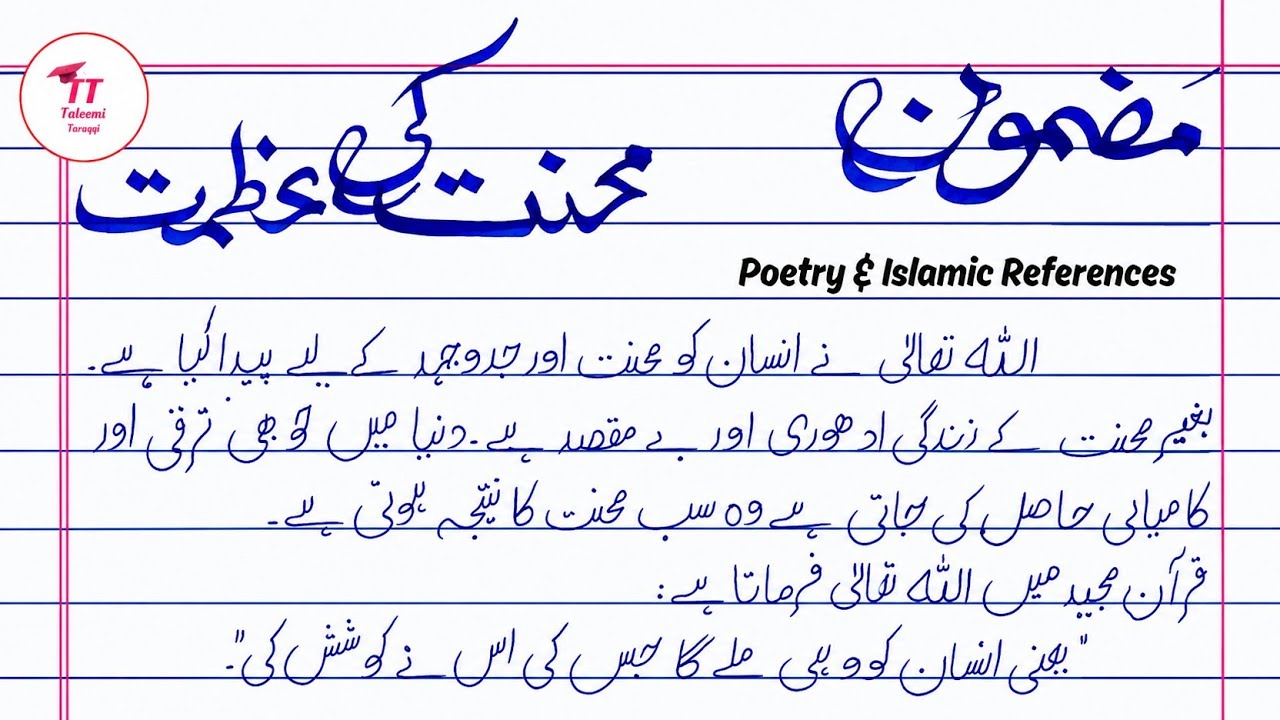 TT
Taleemi
Taraqqi
مَضمون
محنت کی عظمت
Poetry & Islamic References
اللہ تعالیٰ نے انسان کو محنت اور جدوجہد کے لیے پیدا کیا ہے۔
بغیر محنت کے زندگی ادھوری اور بے مقصد ہے۔ دنیا میں جو بھی ترقی اور
کامیابی حاصل کی جاتی ہے وہ سب محنت کا نتیجہ ہوتی ہے۔
قرآن مجید میں اللہ تعالیٰ فرماتا ہے:
"یعنی انسان کو وہی ملے گا جس کی اس نے کوشش کی"۔